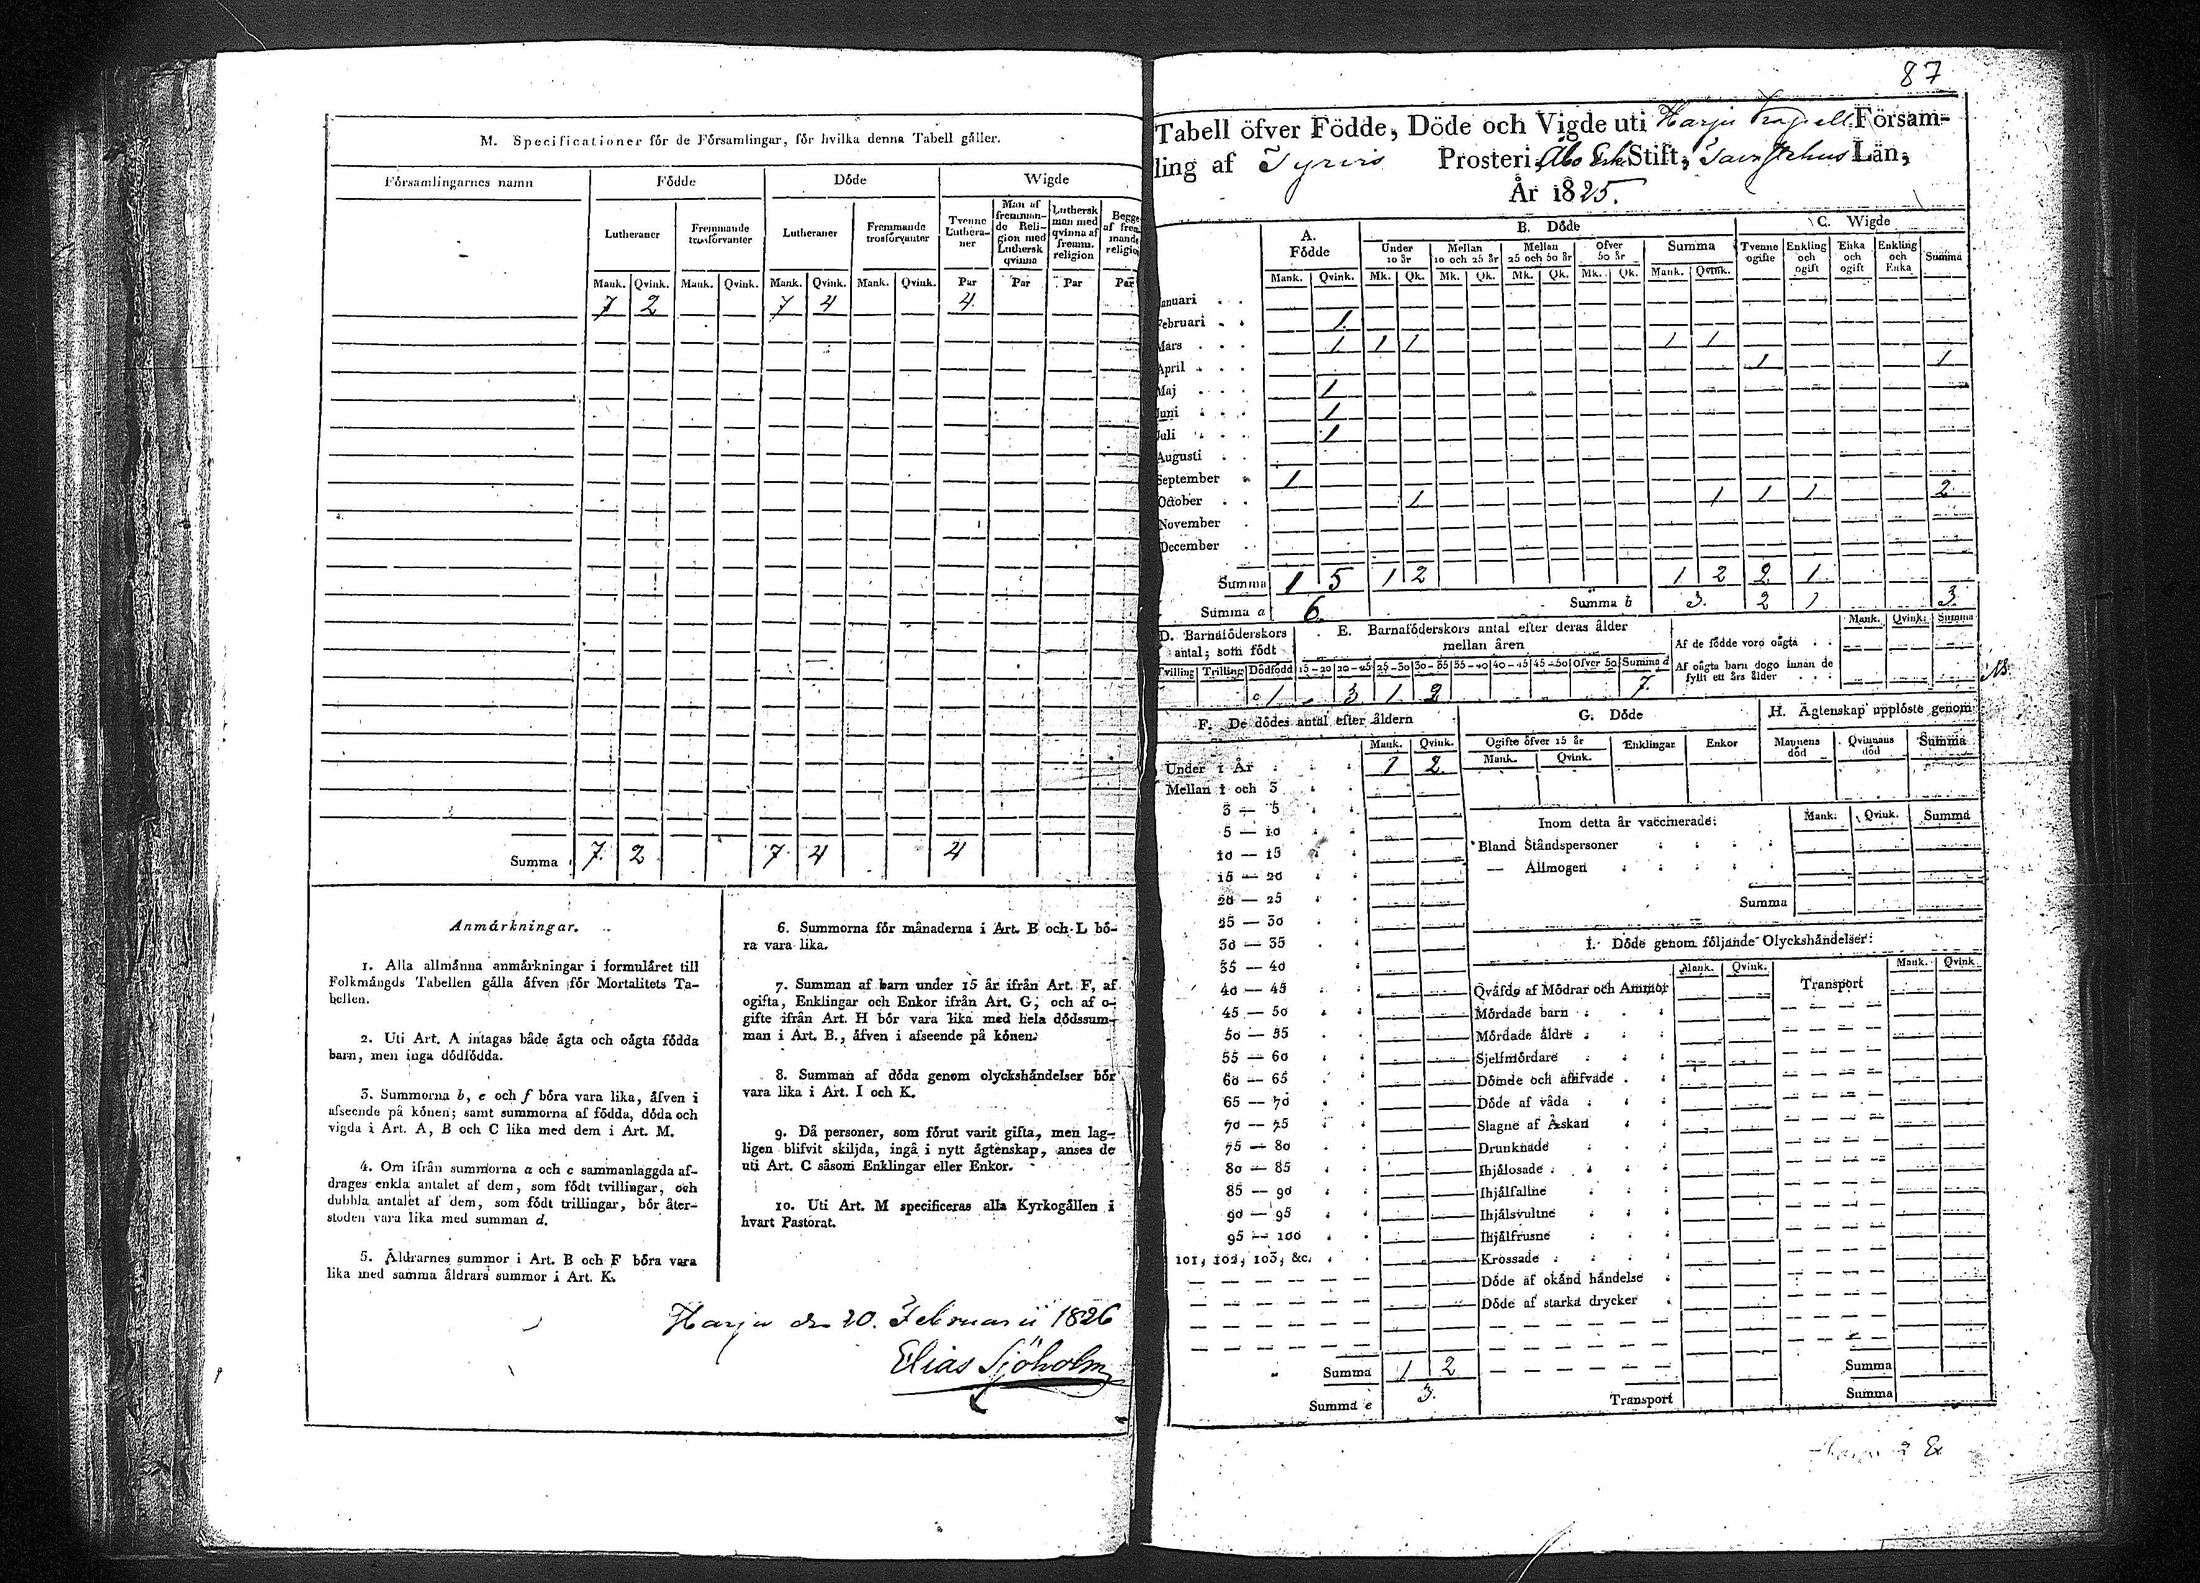 M. Specificationer för de Församlingar, för hvilka denna Tabell gäller.
Församlingarnes namn
Födde
Döde
Wigde
Lutheraner
Fremmande trosförvanter
Lutheraner
Fremmande trosförvanter
Tvenne Lutheraner
Man af fremmande Religion med Luthersk qvinna
Luthersk man med qvinna af fremm. religion
Mank. Qvink. Mank. Qvink. Mank. Qvink. Mank. Qvink. Par Par Par Par
7 2 7 4 4
Summa 7. 2 7. 4 4
Anmärkningar.
1. Alla allmänna anmärkningar i formuläret till
Folkmängds Tabellen gälla äfven för Mortalitets Ta-
bellen.
2. Uti Art. A intagas både ägta och oägta födda
barn, men inga dödfödda.
3. Summorna b, e och f böra vara lika, äfven i
afseende på könen; samt summorna af födda, döda och
vigda i Art. A, B och C lika med dem i Art. M.
4. Om ifrån summorna a och c sammanlaggda af-
drages enkla antalet af dem, som födt tvillingar, och
dubbla antalet af dem, som födt trillingar, bör åter-
stoden vara lika med summan d.
5. Åldrarnes summor i Art. B och F böra vara
lika med samma åldrars summor i Art. K.
6. Summorna för månaderna i Art. B och L bö-
ra vara lika.
7. Summan af barn under 15 år ifrån Art. F, af
ogifta, Enklingar och Enkor ifrån Art. G, och af o-
gifte ifrån Art. H bör vara lika med hela dödssum-
man i Art. B., äfven i afseende på könen.
8. Summan af döda genom olyckshändelser bör
vara lika i Art. I och K.
9. Då personer, som förut varit gifta, men lag-
ligen blifvit skiljda, ingå i nytt ägtenskap, anses de
uti Art. C såsom Enklingar eller Enkor.
10. Uti Art. M specificeras alla Kyrkogällen i
hvart Pastorat.
Harju den 20. Februarii 1826
Elias Sjöholm
87
Tabell öfver Födde, Döde och Vigde uti Harju Församling
af Tyrvis Prosteri, Åbo Stift, Län,
År 1825.
A. Födde
B. Döde
C. Wigde
Under 10 år
Mellan 10 och 25 år
Mellan 25 och 50 år
Öfver 50 år
Summa
Tvenne ogifte
Enkling och ogift
Enka och ogift
Enkling och Enka
Summa
Mank. Qvink. Mk. Qk. Mk. Qk. Mk. Qk. Mk. Qk. Mank. Qvink.
Januari
Februari 1.
Mars 1 1 1 1 1
April 1 1
Maj 1
Juni 1
Juli 1
Augusti
September 1
October 1 1 1 1 2.
November
December
Summa 1 5 1 2 1 2 2 1
Summa a 6. Summa b 3. 2 1 3.
D. Barnaföderskors antal, som födt
Tvilling Trilling Dödfödd
c 1
E. Barnaföderskors antal efter deras ålder mellan åren
15-20 20-25 25-30 30-35 35-40 40-45 45-50 Öfver 50 Summa d
3 1 2 7.
Mank. Qvink. Summa
Af de födde voro oägta
Af oägta barn dogo innan de
fyllt ett års ålder
F. De dödes antal efter åldern
Mank. Qvink.
Under 1 År 1 2
Mellan 1 och 3
3 — 5
5 — 10
10 — 15
15 — 20
20 — 25
25 — 30
30 — 35
35 — 40
40 — 45
45 — 50
50 — 55
55 — 60
60 — 65
65 — 70
70 — 75
75 — 80
80 — 85
85 — 90
90 — 95
95 — 100
101, 102, 103, &c.
Summa 1 2
Summa e 3.
G. Döde
Ogifte öfver 15 år
Mank. Qvink.
Enklingar
Enkor
H. Ägtenskap upplöste genom
Mannens död
Qvinnans död
Summa
Inom detta år vaccinerade: Mank. Qvink. Summa
Bland Ståndspersoner
— Allmogen
Summa
I. Döde genom följande Olyckshändelser:
Mank. Qvink. Mank. Qvink.
Qväfde af Mödrar och Ammor
Transport
Mördade barn
Mördade äldre
Sjelfmördare
Dömde och aflifvade
Döde af våda
Slagne af Åskan
Drunknade
Ihjälosade
Ihjälfallne
Ihjälsvultne
Ihjälfrusne
Krossade
Döde af okänd händelse
Döde af starka drycker
Summa
Transport
Summa